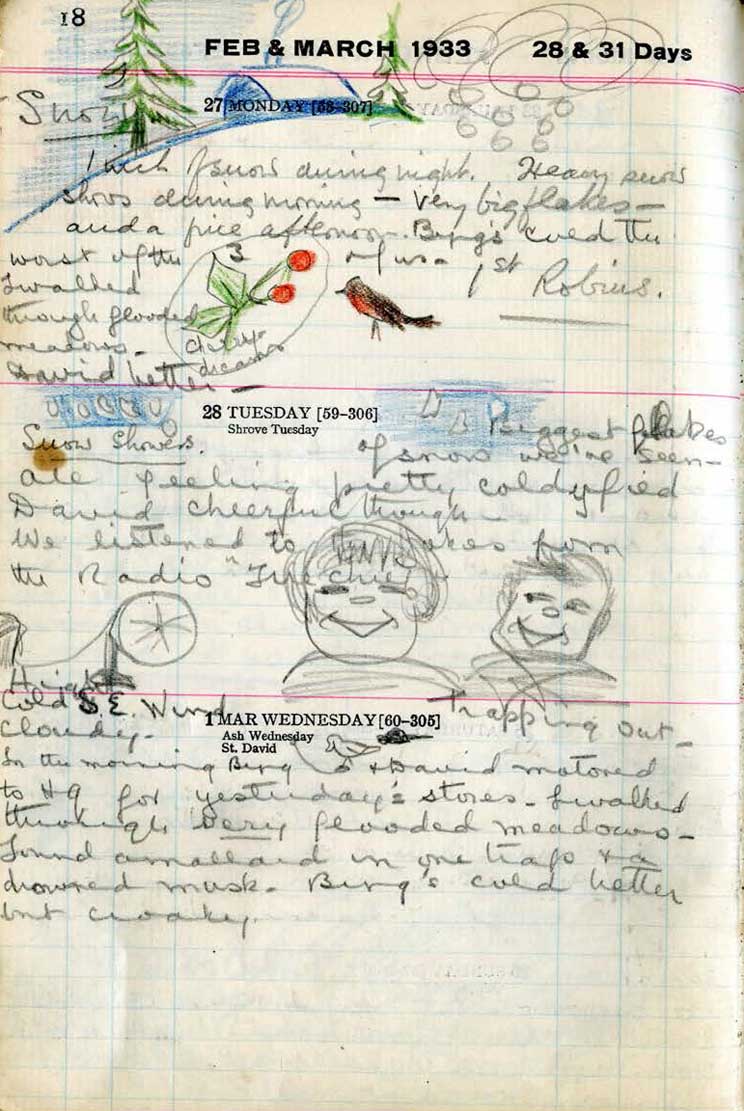 18
FEB & MARCH 1933 28 & 31 Days
27 MONDAY [58-307]
Snow
1 inch of snow during night. Heavy snow
shows during morning — Very big flakes —
and a fine afternoon. Bung's cold the
worst of the 3 of us.
1st Robins.
I walked
through flooded
meadows.
David better —
cherry
dreams
28 TUESDAY [59-306]
Shrove Tuesday
Snow Showers.
Biggest flakes
of snow we've seen —
all feeling pretty coldyfied
David cheerful though.
We listened to from
the Radio "Fire chief"
High
Cold S.E. Wind
cloudy.
1 MAR WEDNESDAY [60-305]
Ash Wednesday
St. David
Trapping out —
In the morning Bung & David motored
to HQ for yesterday's stores. I walked
through very flooded meadows —
found a mallard in one trap & a
drowned musk. Bung's cold better
but croaky.